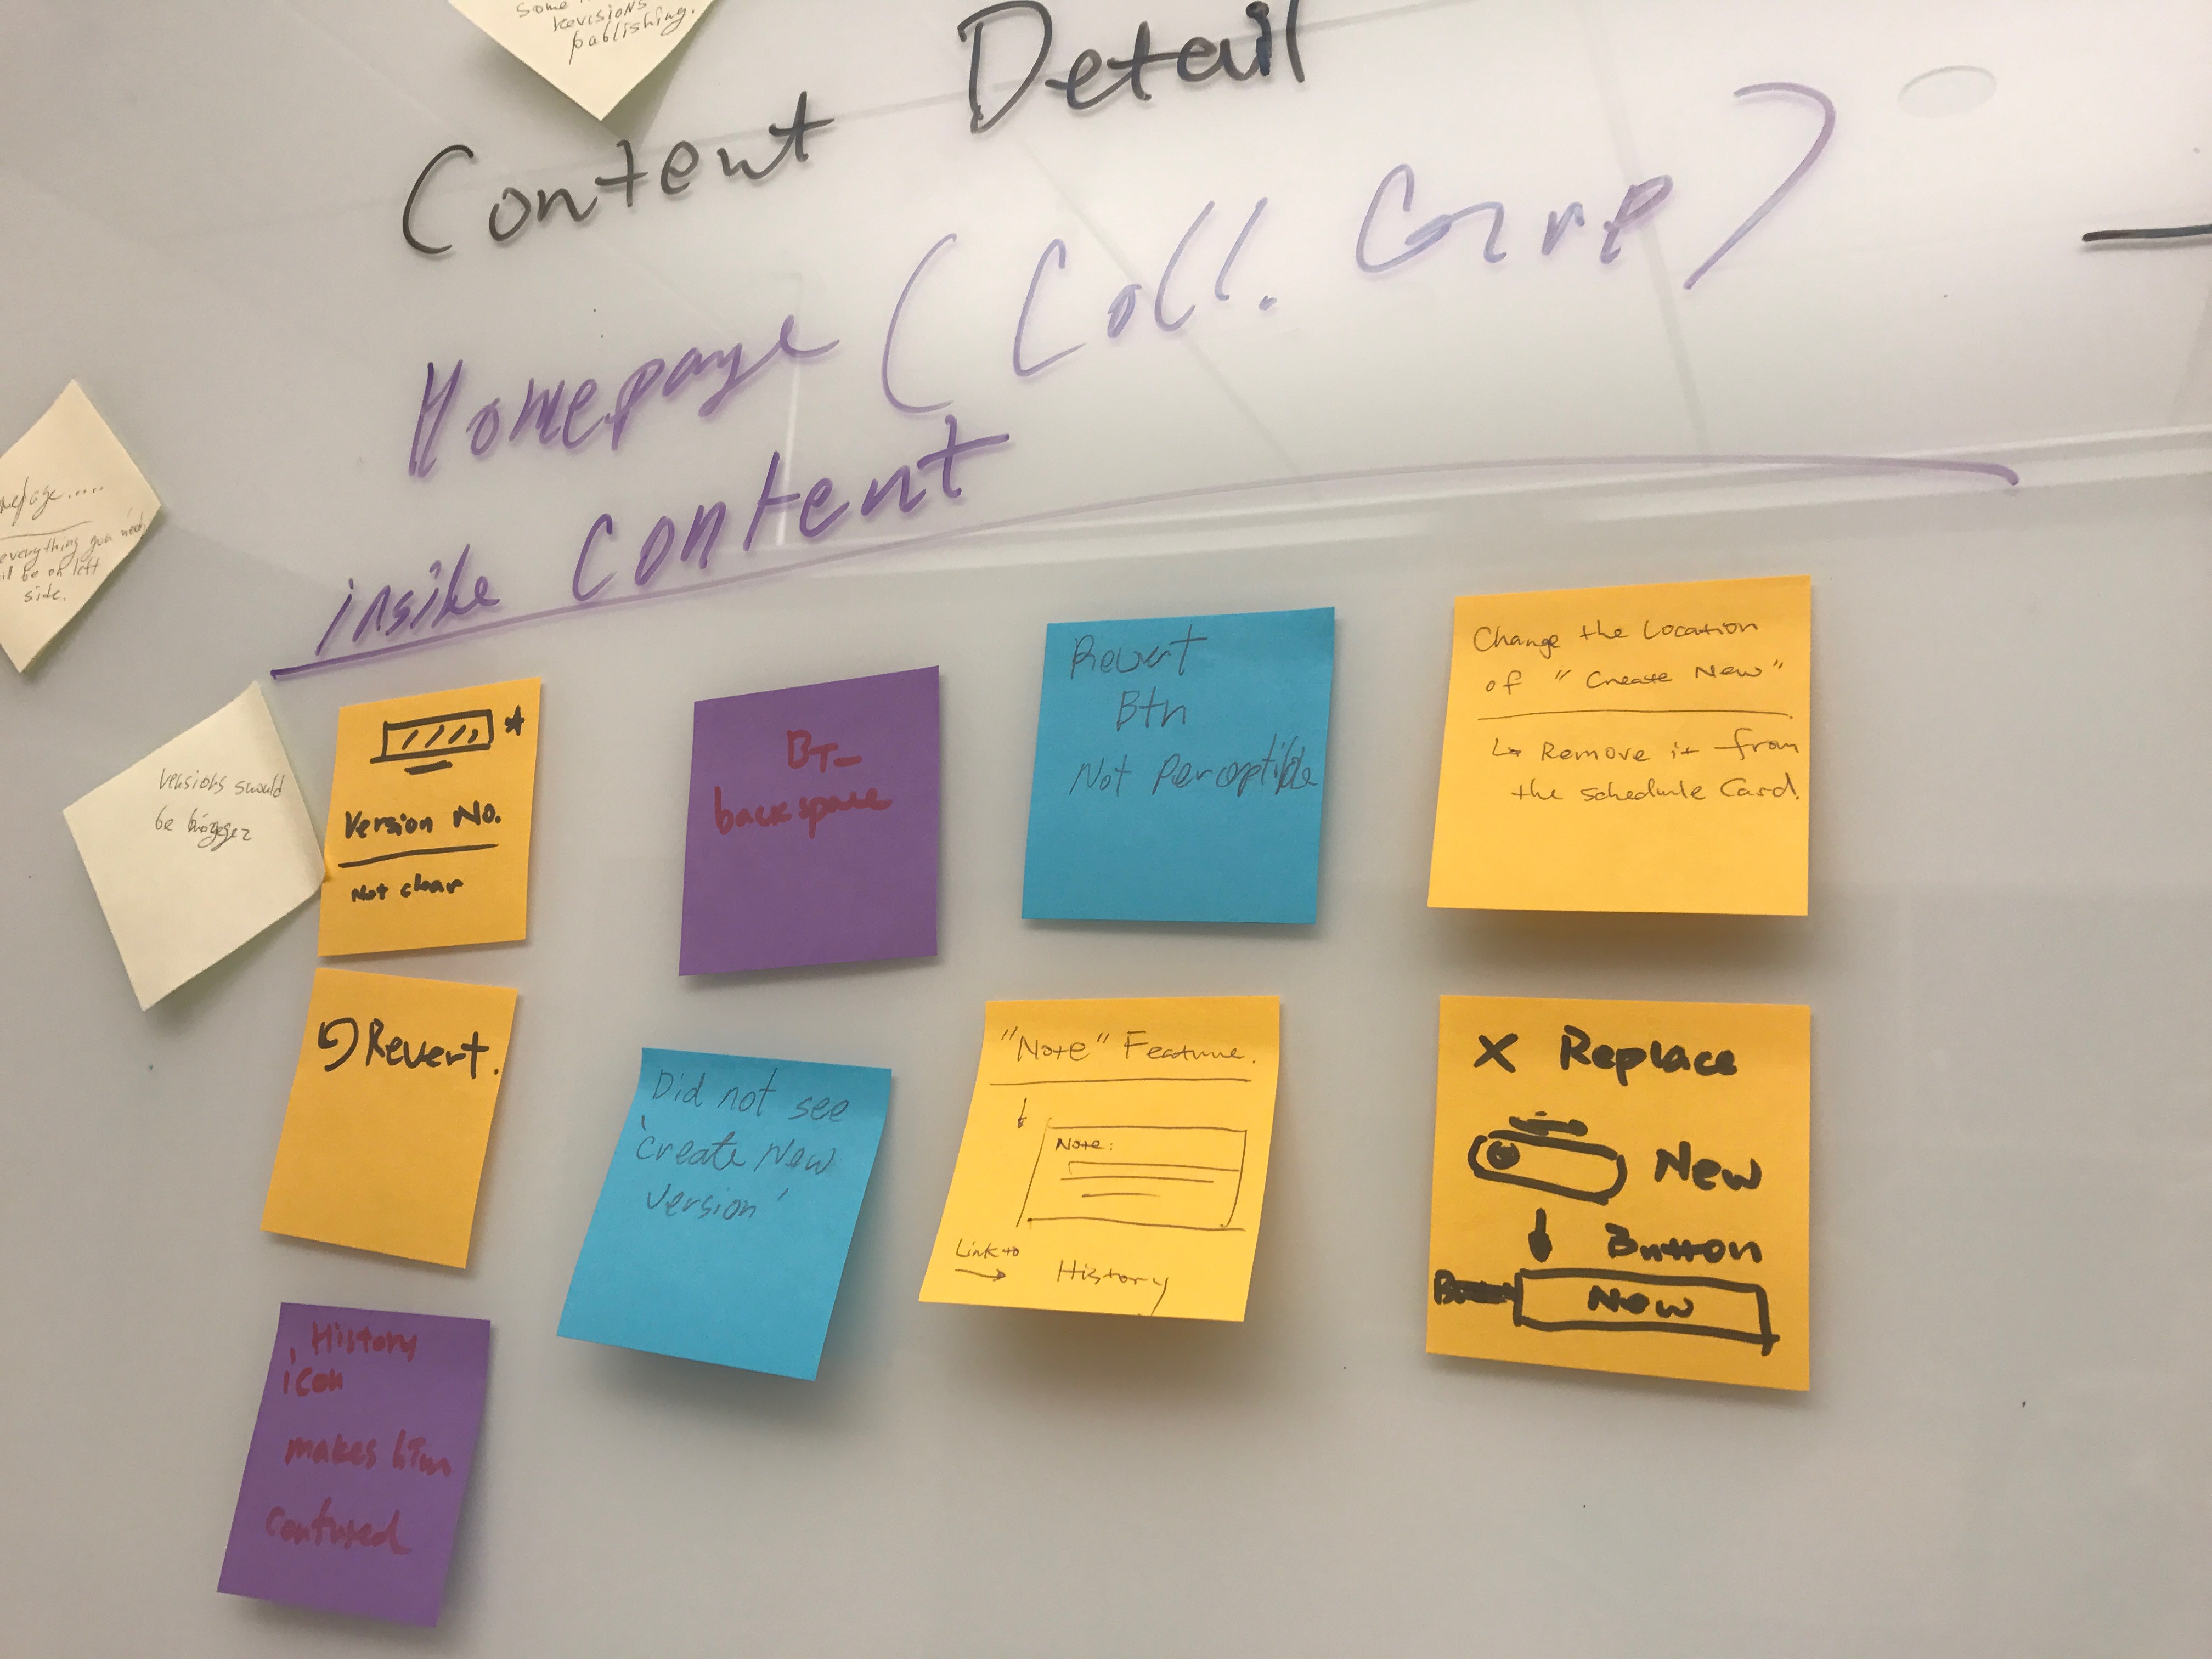 some
revisions
publishing.
Content Detail
Homepage (Coll.
inside content
everything you need
be on left
side.
versions should
be bigger
Version No.
Not clear
BT_
backspace
Revert
Btn
Not perceptible
Change the Location
of "Create New"
↳ Remove it from
the schedule Card.
Revert.
Did not see
'create New
version'
"Note" Feature.
Note:
Link to
→ History
X Replace
New
Button
New
History
icon
makes
confused